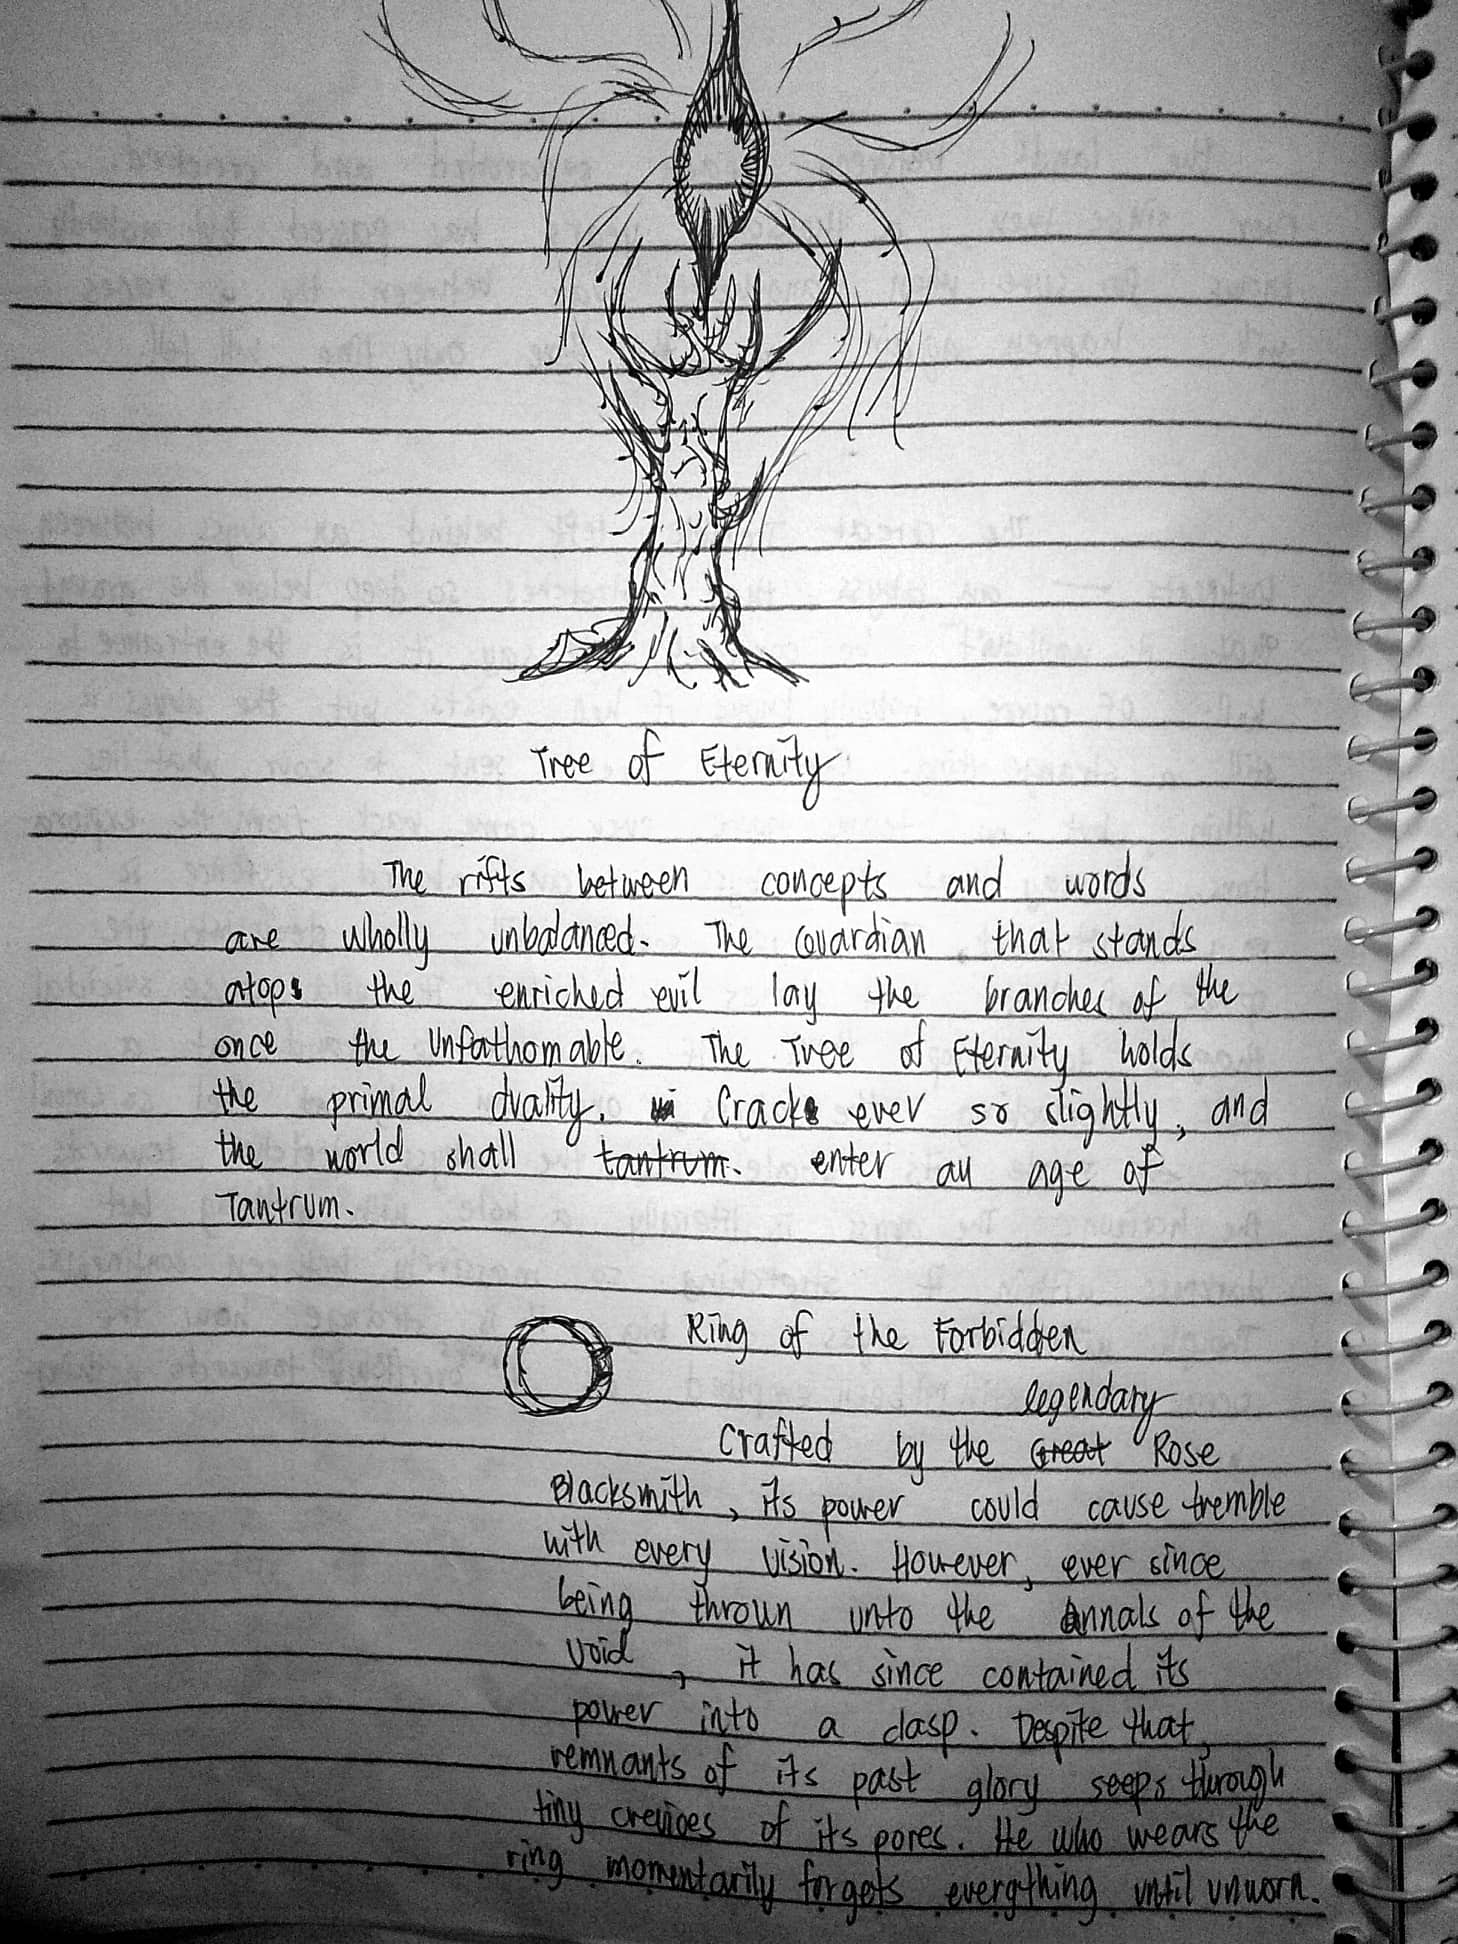 Tree of Eternity
The rifts between concepts and words
are wholly unbalanced. The Guardian that stands
atops the enriched evil lay the branches of the
once the Unfathomable. The Tree of Eternity holds
the primal duality. Crack ever so slightly, and
the world shall tantrum. enter an age of
Tantrum.
Ring of the Forbidden
legendary
Crafted by the Great Rose
Blacksmith, its power could cause tremble
with every vision. However, ever since
being thrown unto the Annals of the
Void, it has since contained its
power into a clasp. Despite that,
remnants of its past glory seeps through
tiny crevices of its pores. He who wears the
ring momentarily forgets everything until unworn.